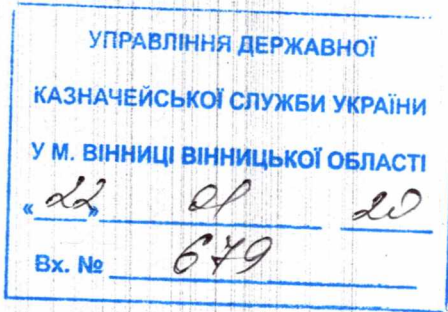 УПРАВЛІННЯ ДЕРЖАВНОЇ
КАЗНАЧЕЙСЬКОЇ СЛУЖБИ УКРАЇНИ
У М. ВІННИЦІ ВІННИЦЬКОЇ ОБЛАСТІ
«22» 01 20
Вх. № 679